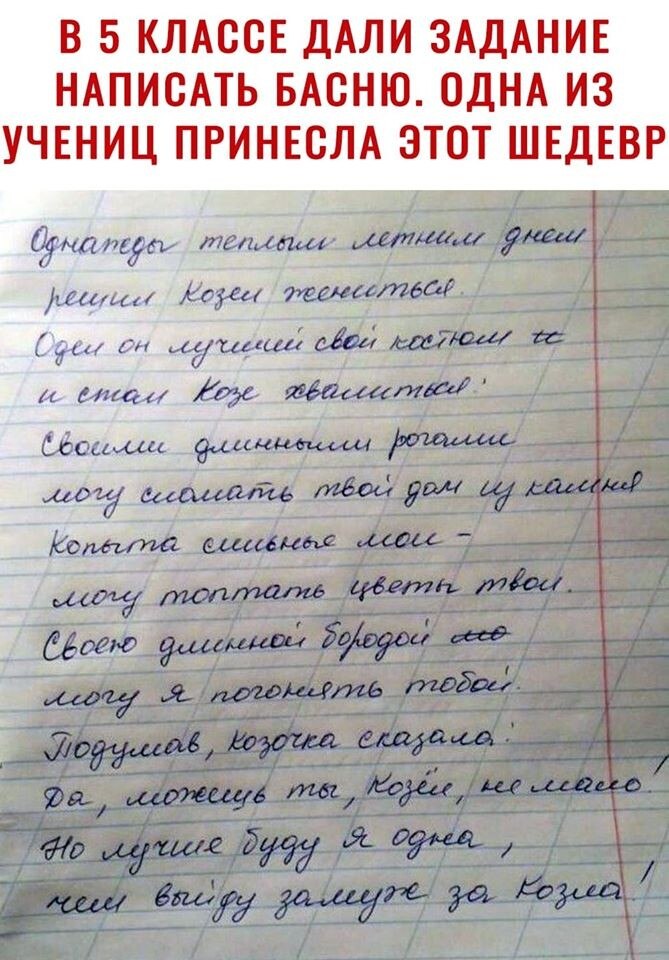 В 5 КЛАССЕ ДАЛИ ЗАДАНИЕ
НАПИСАТЬ БАСНЮ. ОДНА ИЗ
УЧЕНИЦ ПРИНЕСЛА ЭТОТ ШЕДЕВР
Однажды теплым летним днем
решил Козел жениться.
Одел он лучший свой костюм и
и стал Козе хвалиться:
Своими длинными рогами
могу сломать твой дом из камня
Копыта сильные мои –
могу топтать цветы твои.
Своею длинной бородой мо
могу я погонять тобой.
Подумав, Козочка сказала:
Да, можешь ты, Козёл, не мало!
Но лучше буду я одна,
чем выйду замуж за Козла!